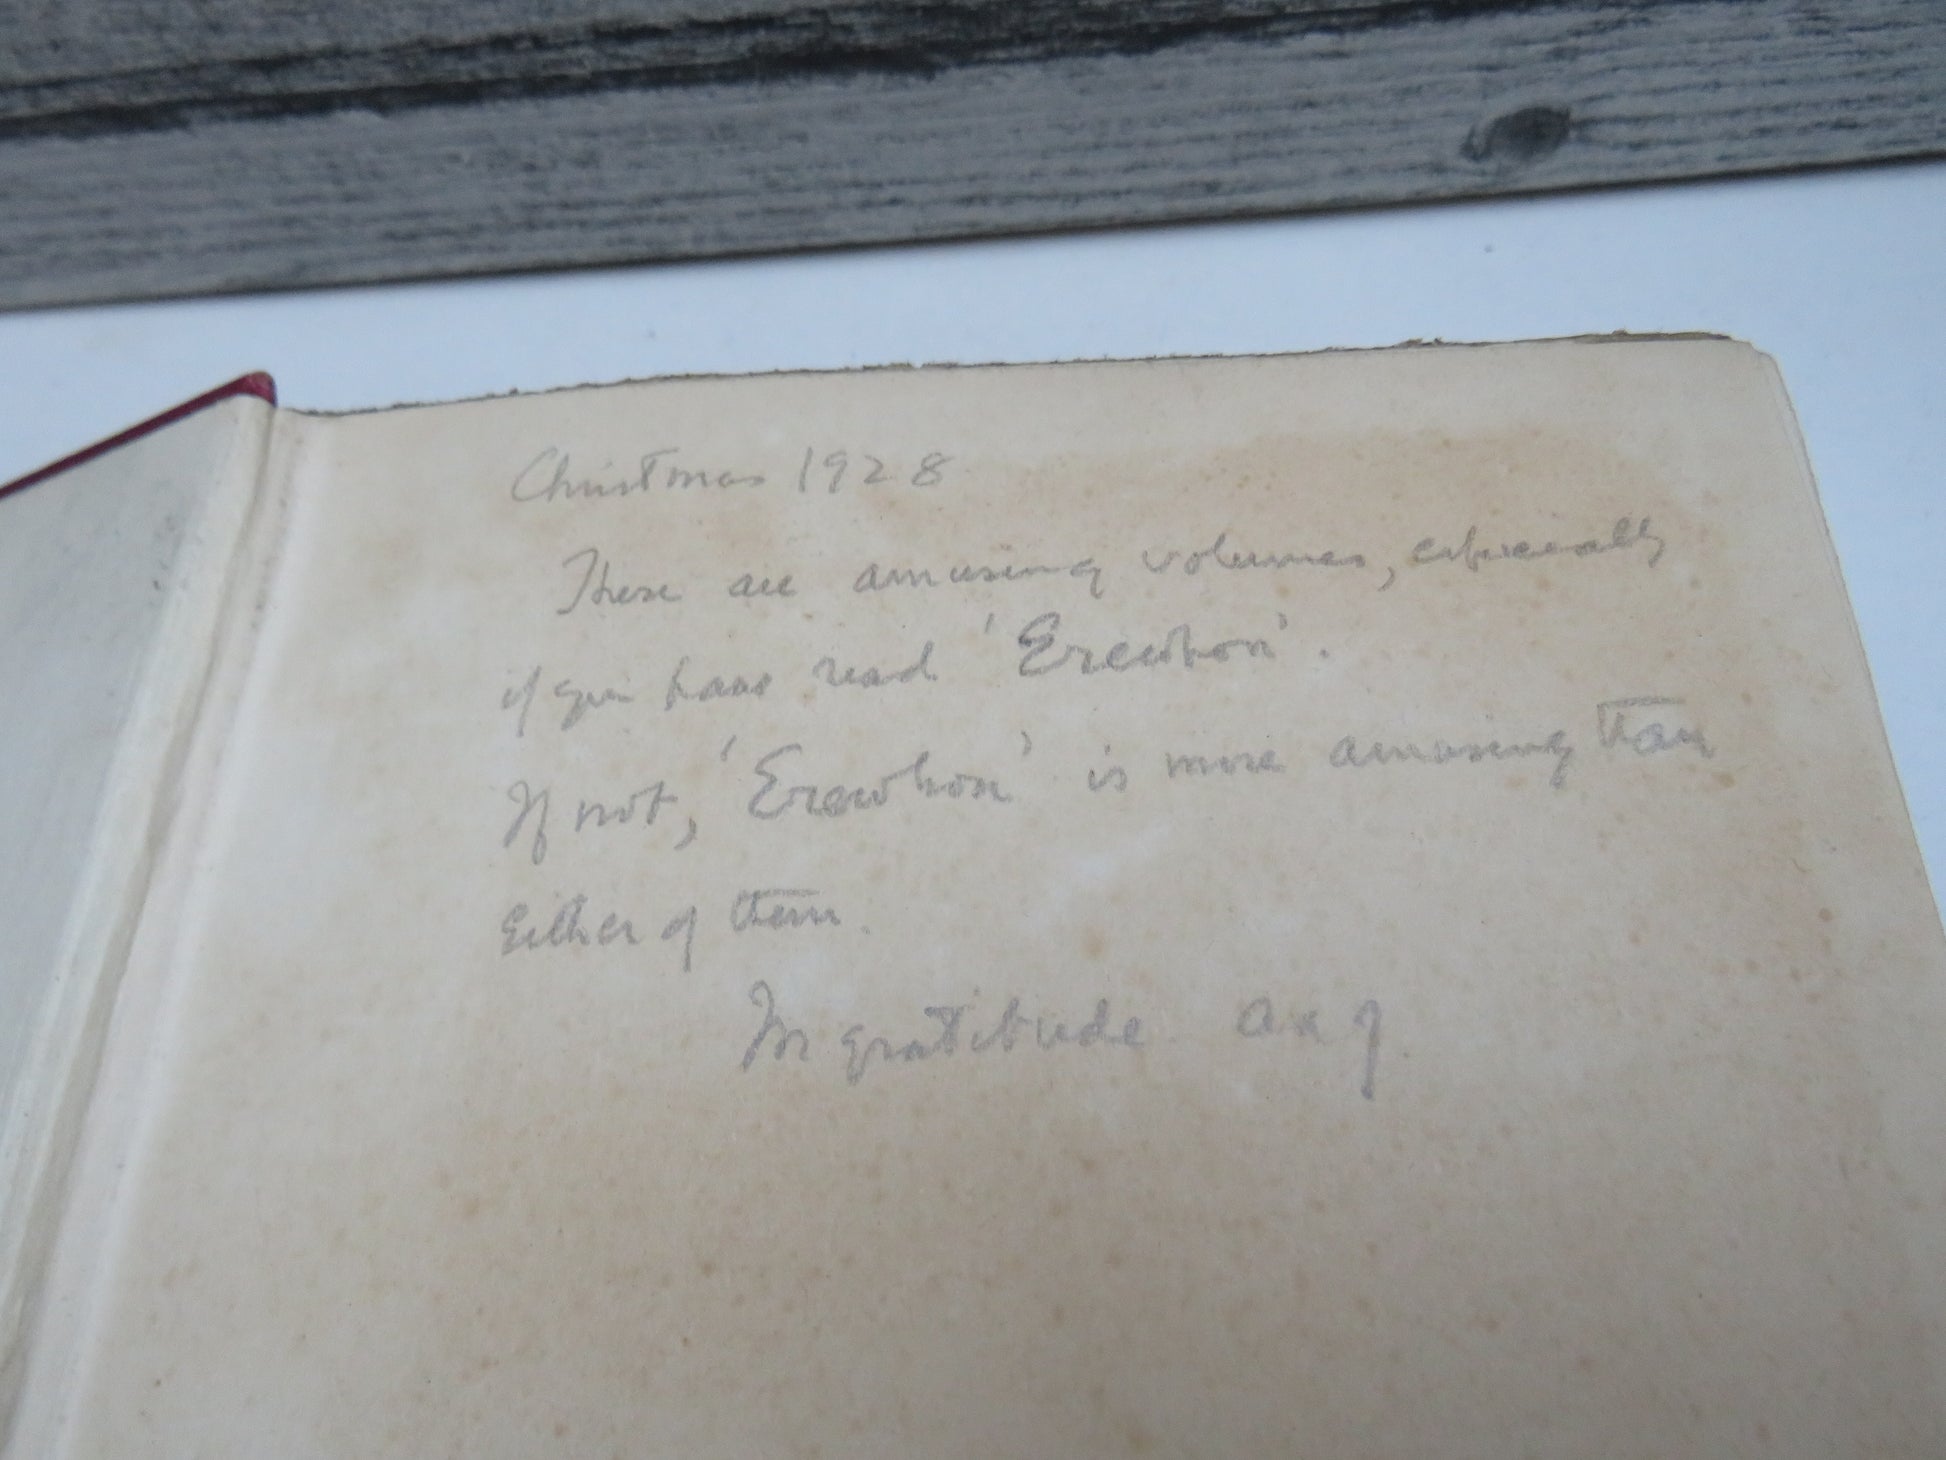 Christmas 1928
These are amusing volumes, especially
if you have read 'Erewhon'.
If not, 'Erewhon' is more amusing than
Either of them.
In gratitude